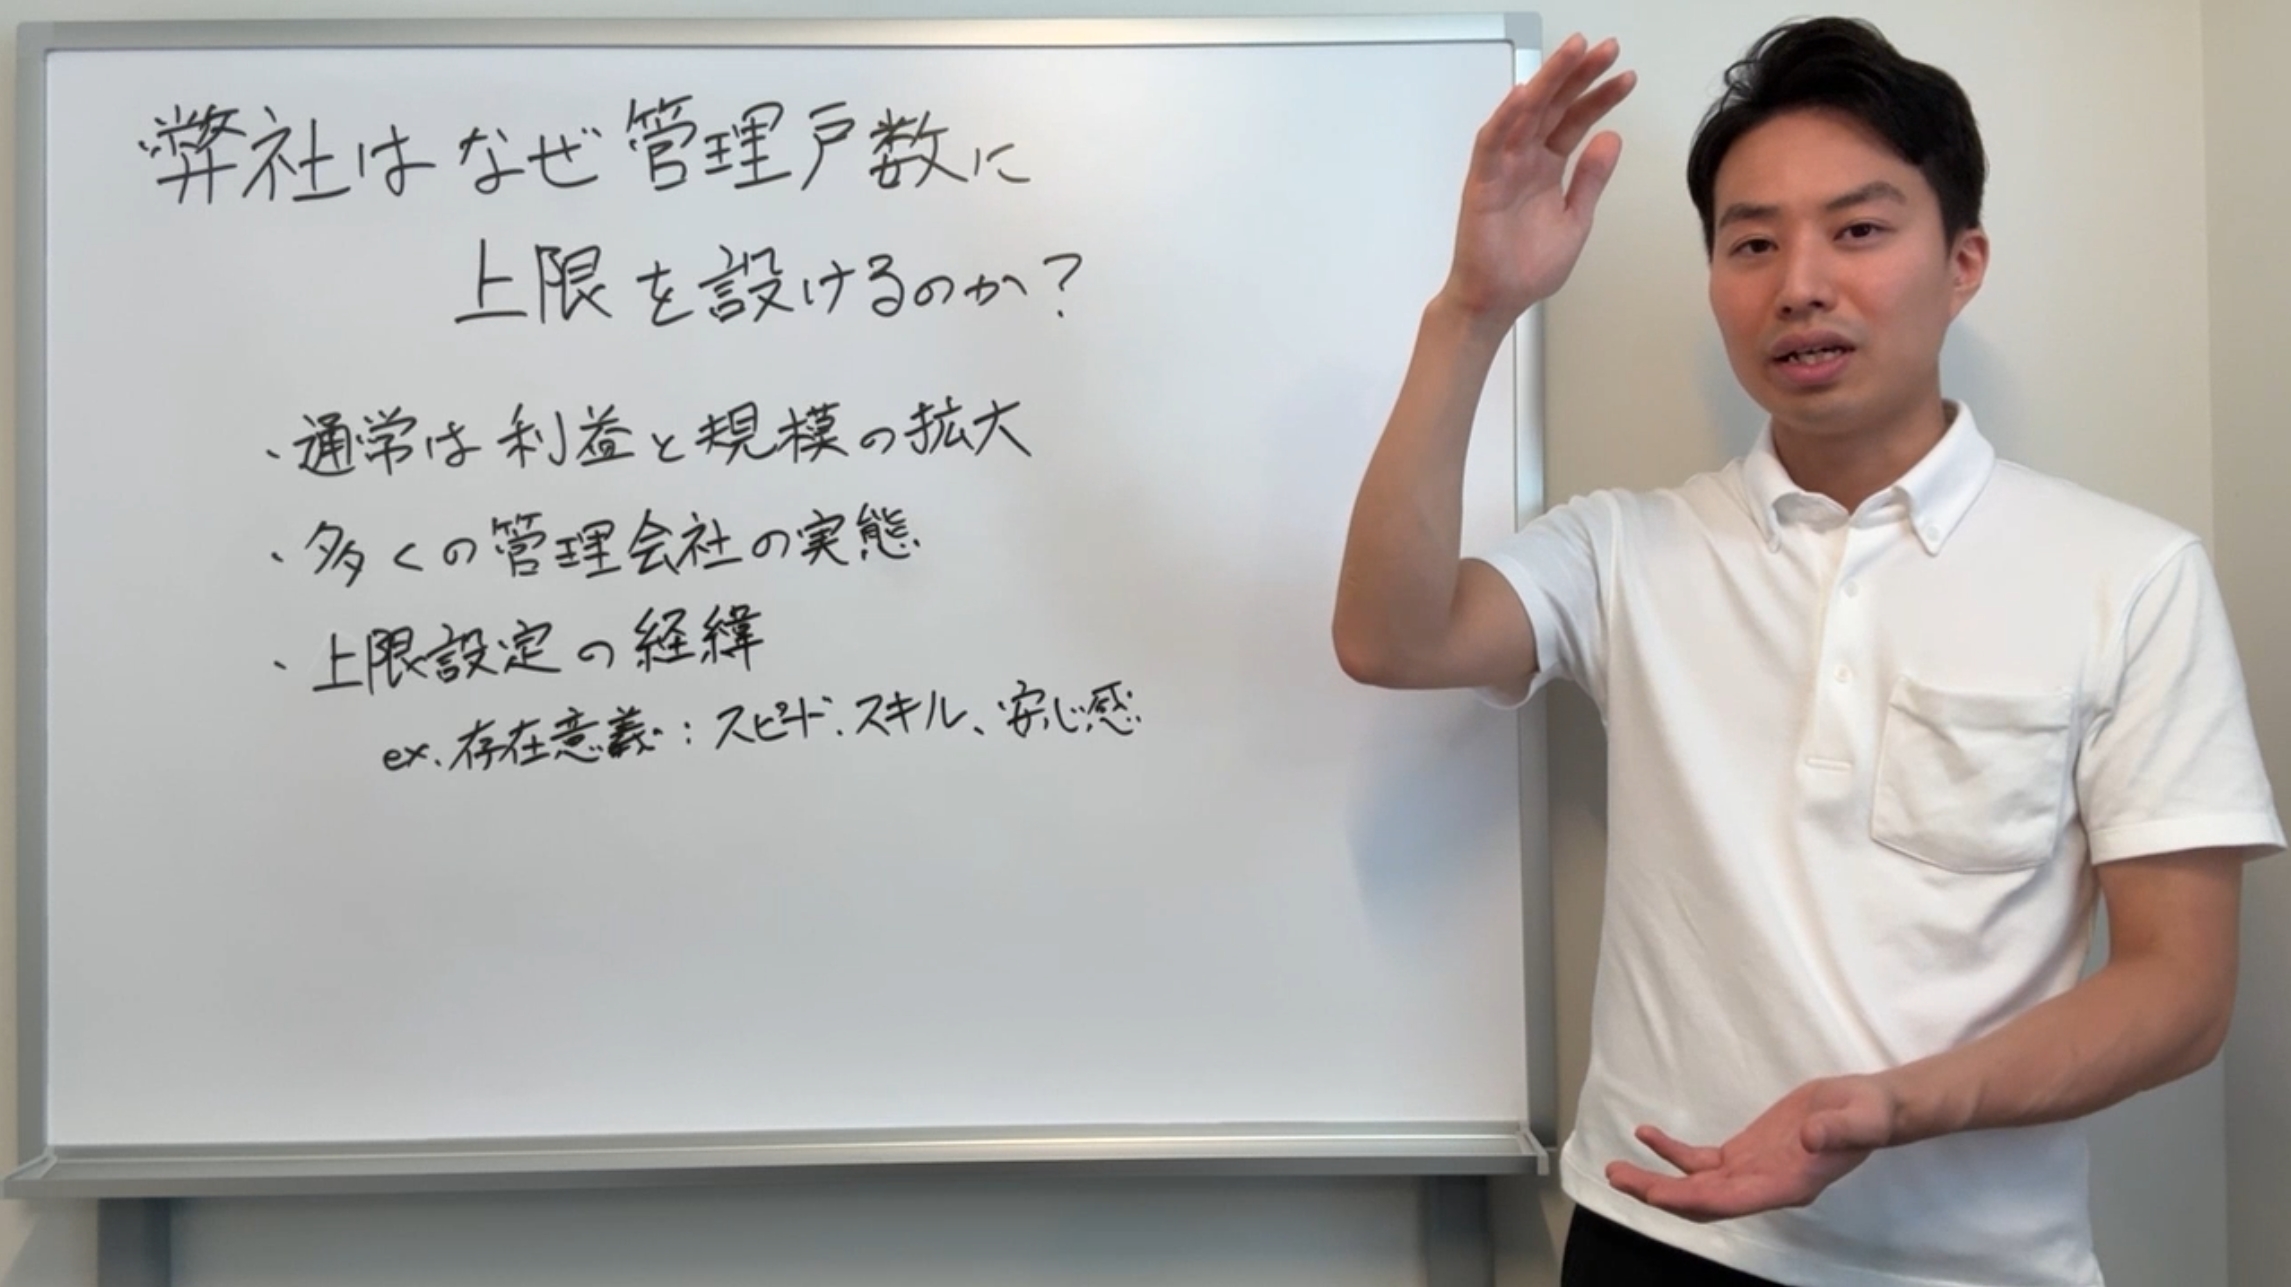 弊社はなぜ管理戸数に
上限を設けるのか?
・通常は利益と規模の拡大
・多くの管理会社の実態
・上限設定の経緯
ex.存在意義:スピード、スキル、安心感